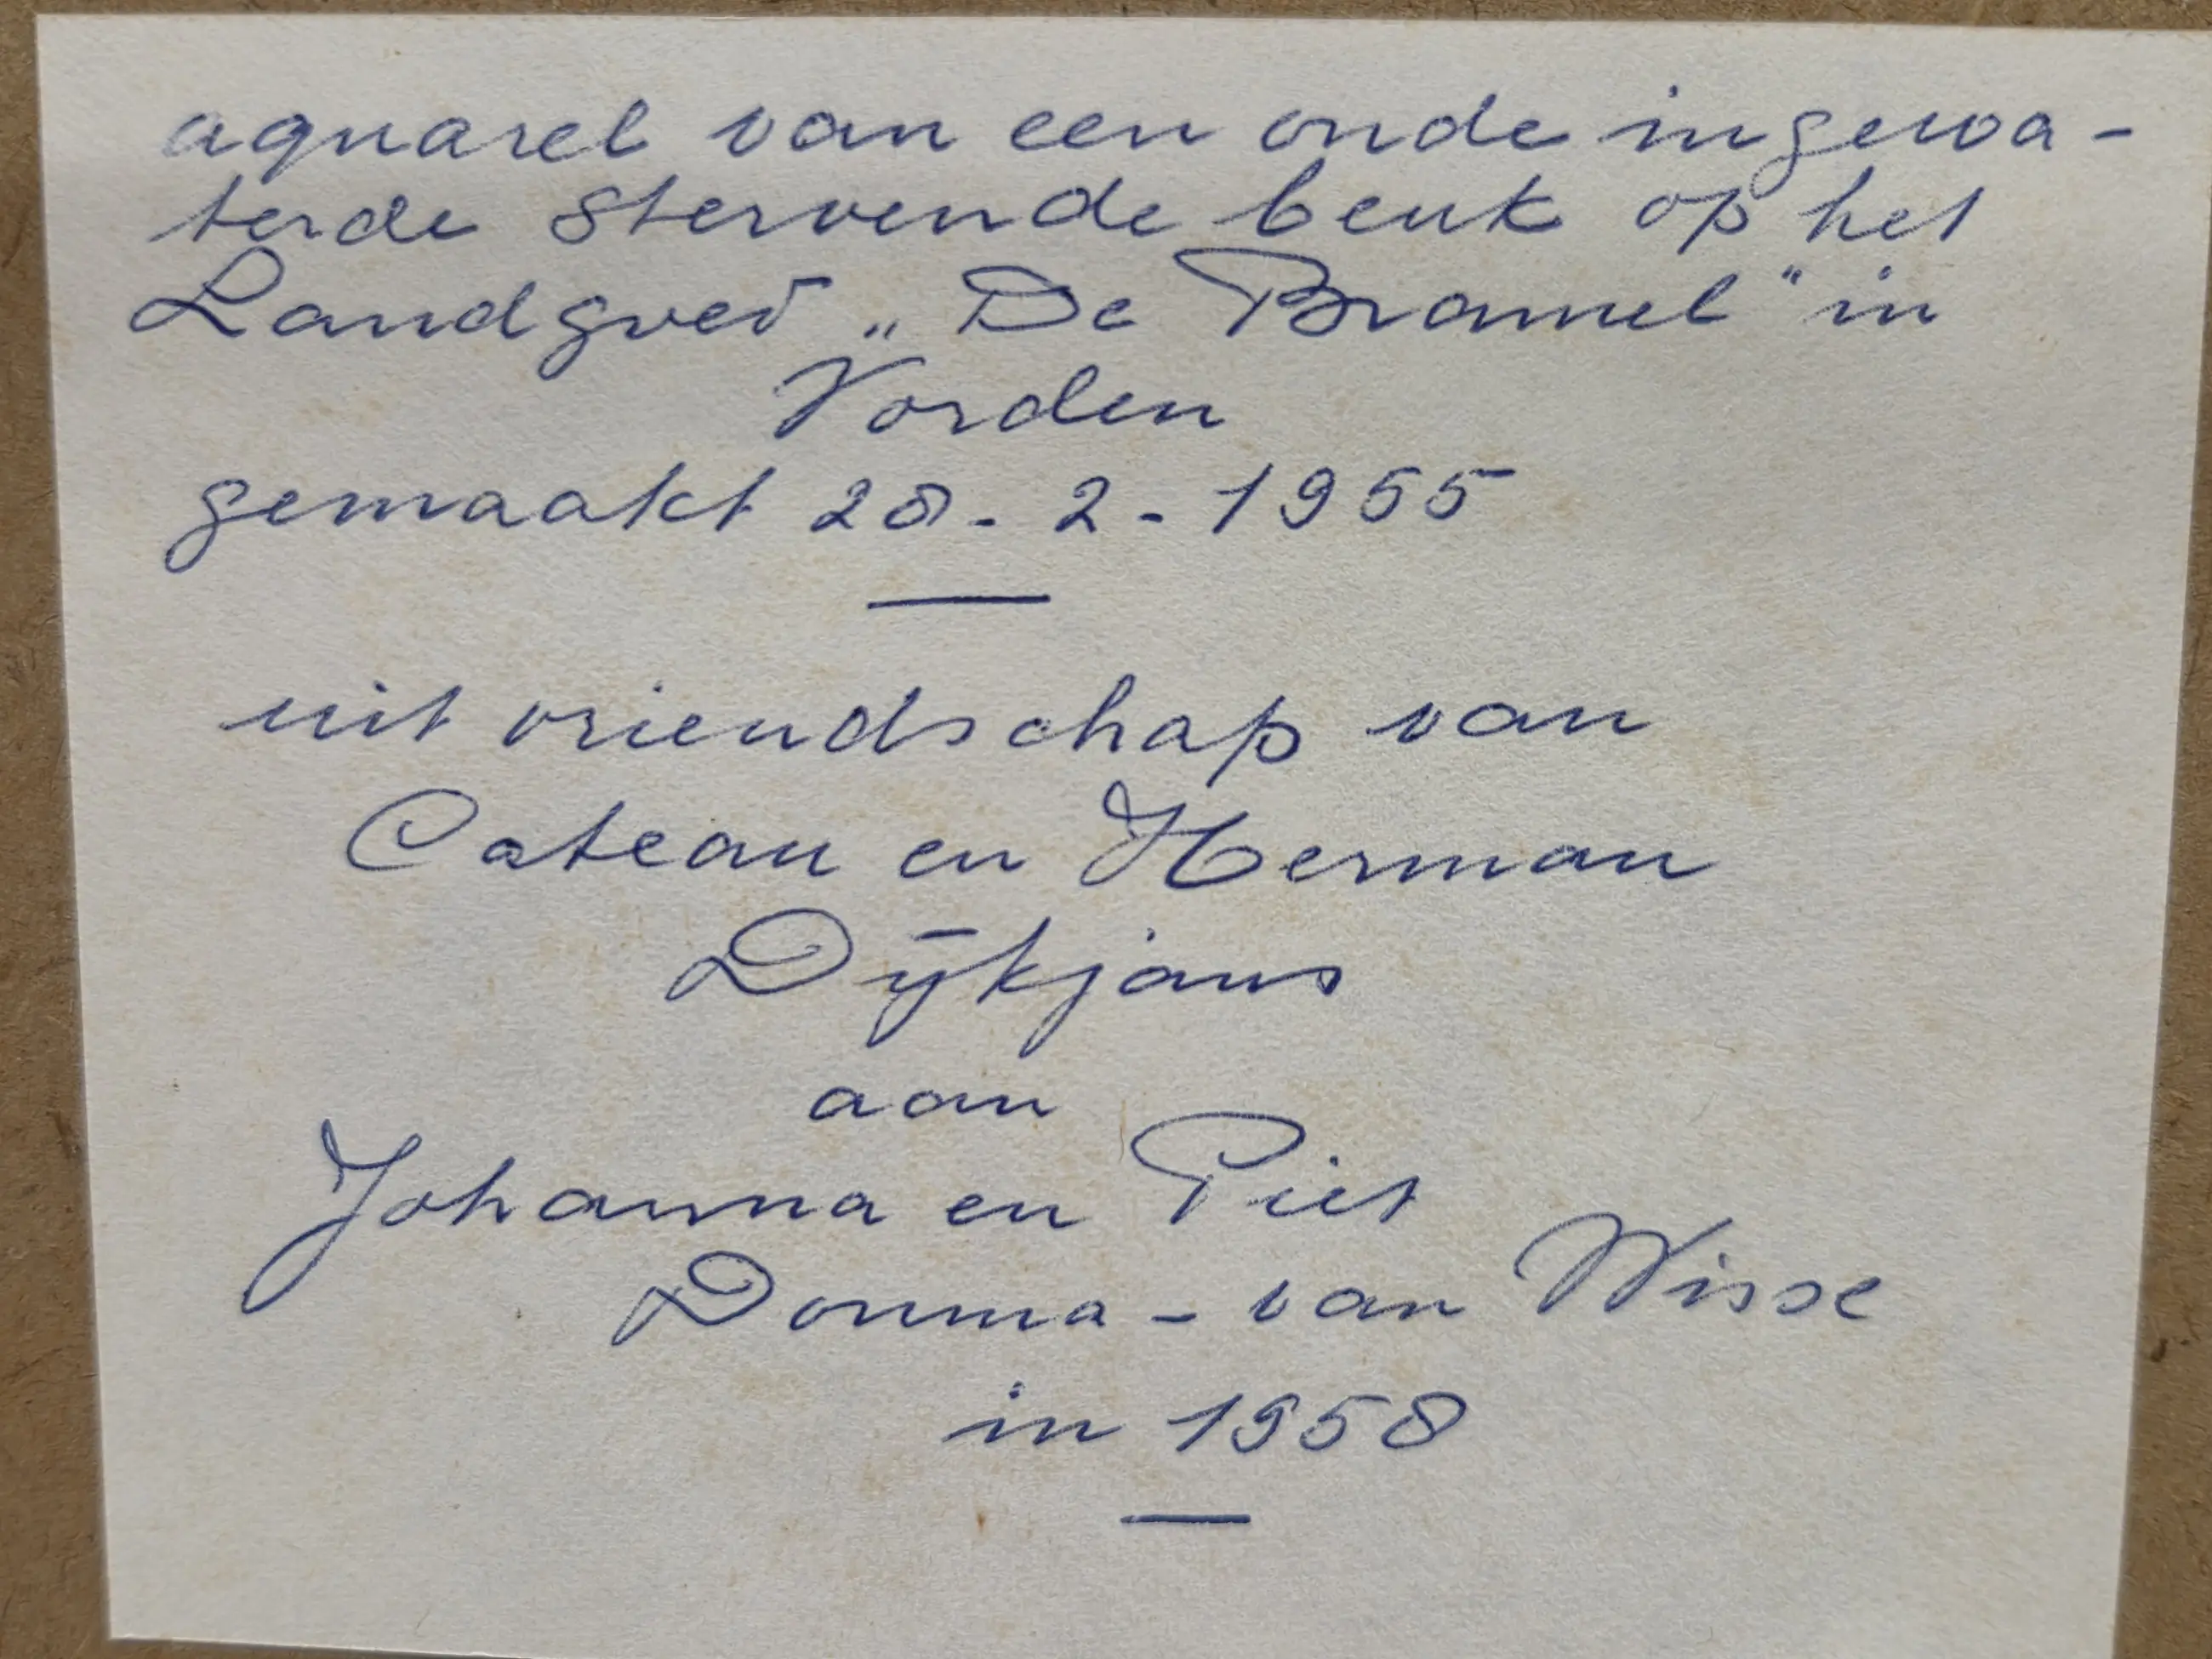 aquarel van een oude ingewa-
terde stervende beuk op het
Landgoed „De Bramel" in
Vorden
gemaakt 28-2-1955
uit vriendschap van
Cateau en Herman
Dijkjans
aan
Johanna en Piet
Douma - van Wisse
in 1958